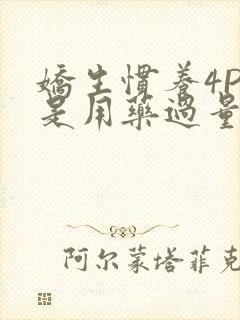 嬌生慣養4P
是用藥過量
阿尔蒙塔菲克